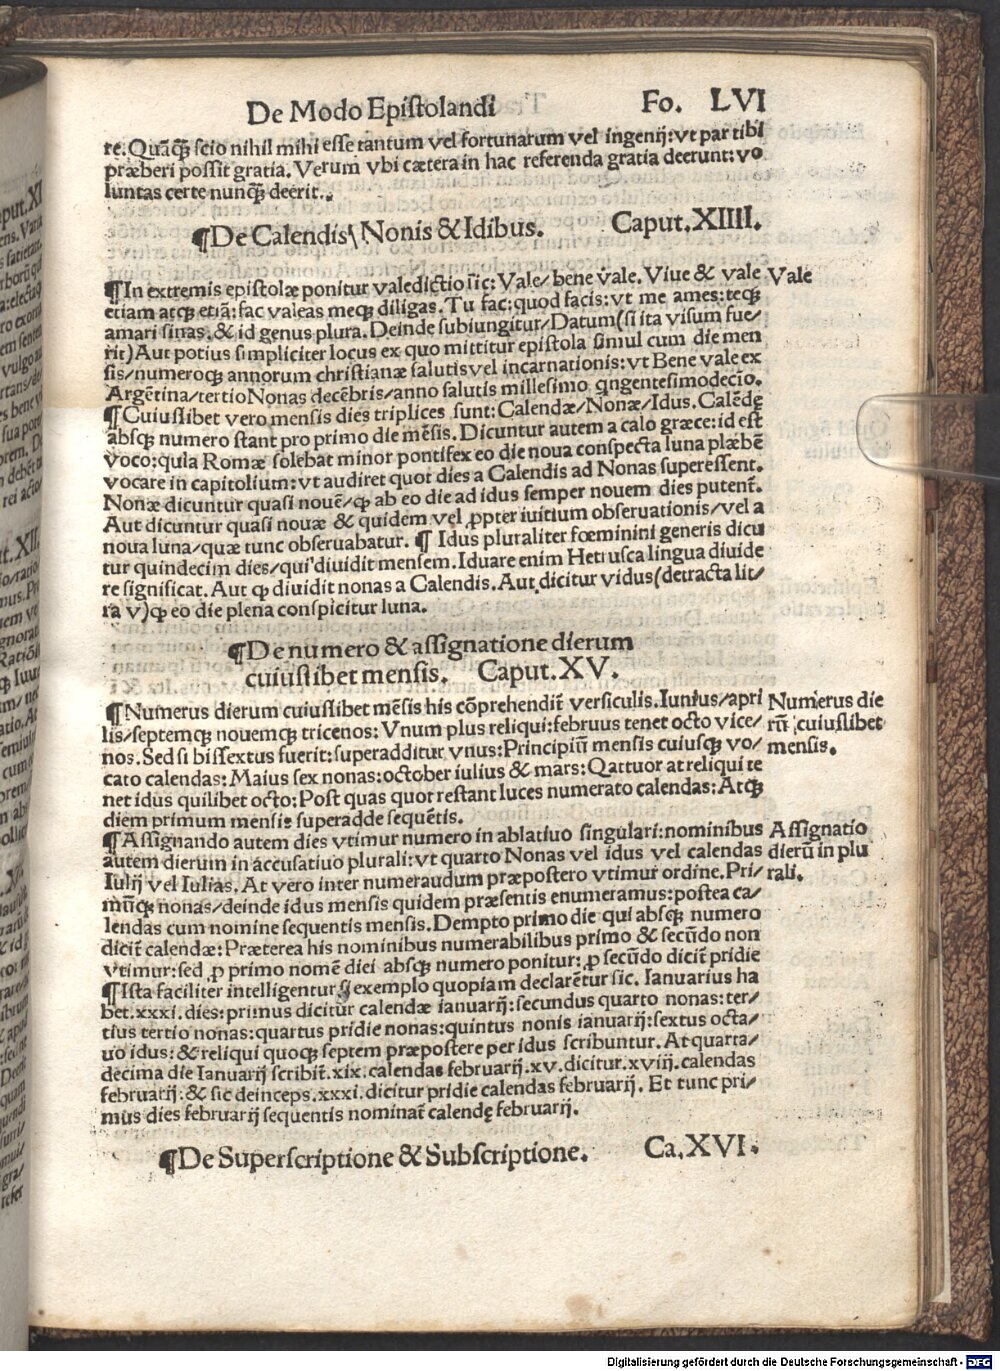 De Modo Epistolandi Fo. LVI
re. Quãꝙ̃ scio nihil mihi esse tantum vel fortunarum vel ingenij: vt par tibi
præberi possit gratia. Verum vbi cætera in hac referenda gratia deerunt: vo
luntas certe nunꝙ̃ deerit.
¶De Calendis\ Nonis & Idibus. Caput. XIIII.
¶In extremis epistolæ ponitur valedictio sic: Vale/ bene vale. Viue & vale
Vale
etiam atqꝫ etiã: fac valeas meqꝫ diligas. Tu fac: quod facis: vt me ames: teqꝫ
amari sinas. & id genus plura. Deinde subiungitur/ Datum (si ita visum fue/
rit) Aut potius simpliciter locus ex quo mittitur epistola simul cum die men
sis/ numeroqꝫ annorum christianæ salutis vel incarnationis: vt Bene vale ex
Argẽtina/ tertio Nonas decẽbris/ anno salutis millesimo qngentesimodecĩo.
¶Cuiuslibet vero mensis dies triplices sunt: Calendæ/ Nonæ/ Idus. Calẽdę
absqꝫ numero stant pro primo die mẽsis. Dicuntur autem a calo græce: id est
voco: quia Romæ solebat minor pontifex eo die noua conspecta luna plæbẽ
vocare in capitolium: vt audiret quot dies a Calendis ad Nonas superessent.
Nonæ dicuntur quasi nouẽ/ ꝙ ab eo die ad idus semper nouem dies putent̃.
Aut dicuntur quasi nouæ & quidem vel ꝓpter iuitium obseruationis/ vel a
noua luna/ quæ tunc obseruabatur. ¶ Idus pluraliter fœminini generis dicu
tur quindecim dies/ qui diuidit mensem. Iduare enim Hetrusca lingua diuide
re significat. Aut ꝙ diuidit nonas a Calendis. Aut dicitur vidus (detracta lit/
ra v) ꝙ eo die plena conspicitur luna.
¶De numero & assignatione dierum
cuiuslibet mensis. Caput. XV.
¶Numerus dierum cuiuslibet mẽsis his cõprehendit̃ versiculis. Iunius/ apri
lis/ septemqꝫ nouemqꝫ tricenos: Vnum plus reliqui: februus tenet octo vice/
nos. Sed si bissextus fuerit: superadditur vnus: Principiũ mensis cuiusqꝫ vo/
cato calendas: Maius sex nonas: october iulius & mars: Qattuor at reliqui te
net idus quilibet octo: Post quas quot restant luces numerato calendas: Atqꝫ
diem primum mensis superadde sequẽtis.
Numerus die
rũ cuiuslibet
mensis.
¶Assignando autem dies vtimur numero in ablatiuo singulari: nominibus
autem dierum in accusatiuo plurali: vt quarto Nonas vel idus vel calendas
Iulij vel Iulias. At vero inter numeraudum præpostero vtimur ordine. Pri/
mũqꝫ nonas/ deinde idus mensis quidem præsentis enumeramus: postea ca/
lendas cum nomine sequentis mensis. Dempto primo die qui absqꝫ numero
dicit̃ calendæ: Præterea his nominibus numerabilibus primo & secũdo non
vtimur: sed ꝓ primo nomẽ diei absqꝫ numero ponitur: ꝓ secũdo dicit̃ pridie
Assignatio
dierũ in plu
rali.
¶Ista faciliter intelligentur si exemplo quopiam declarẽtur sic. Ianuarius ha
bet .xxxi. dies: primus dicitur calendæ ianuarij: secundus quarto nonas: ter/
tius tertio nonas: quartus pridie nonas: quintus nonis ianuarij: sextus octa/
uo idus: & reliqui quoqꝫ septem præpostere per idus scribuntur. At quarta/
decima die Ianuarij scribit̃ .xix. calendas februarij .xv. dicitur .xviij. calendas
februarij: & sic deinceps .xxxi. dicitur pridie calendas februarij. Et tunc pri/
mus dies februarij sequentis nominat̃ calendę februarij.
¶De Superscriptione & Subscriptione. Ca. XVI.
Digitalisierung gefördert durch die Deutsche Forschungsgemeinschaft - DFG